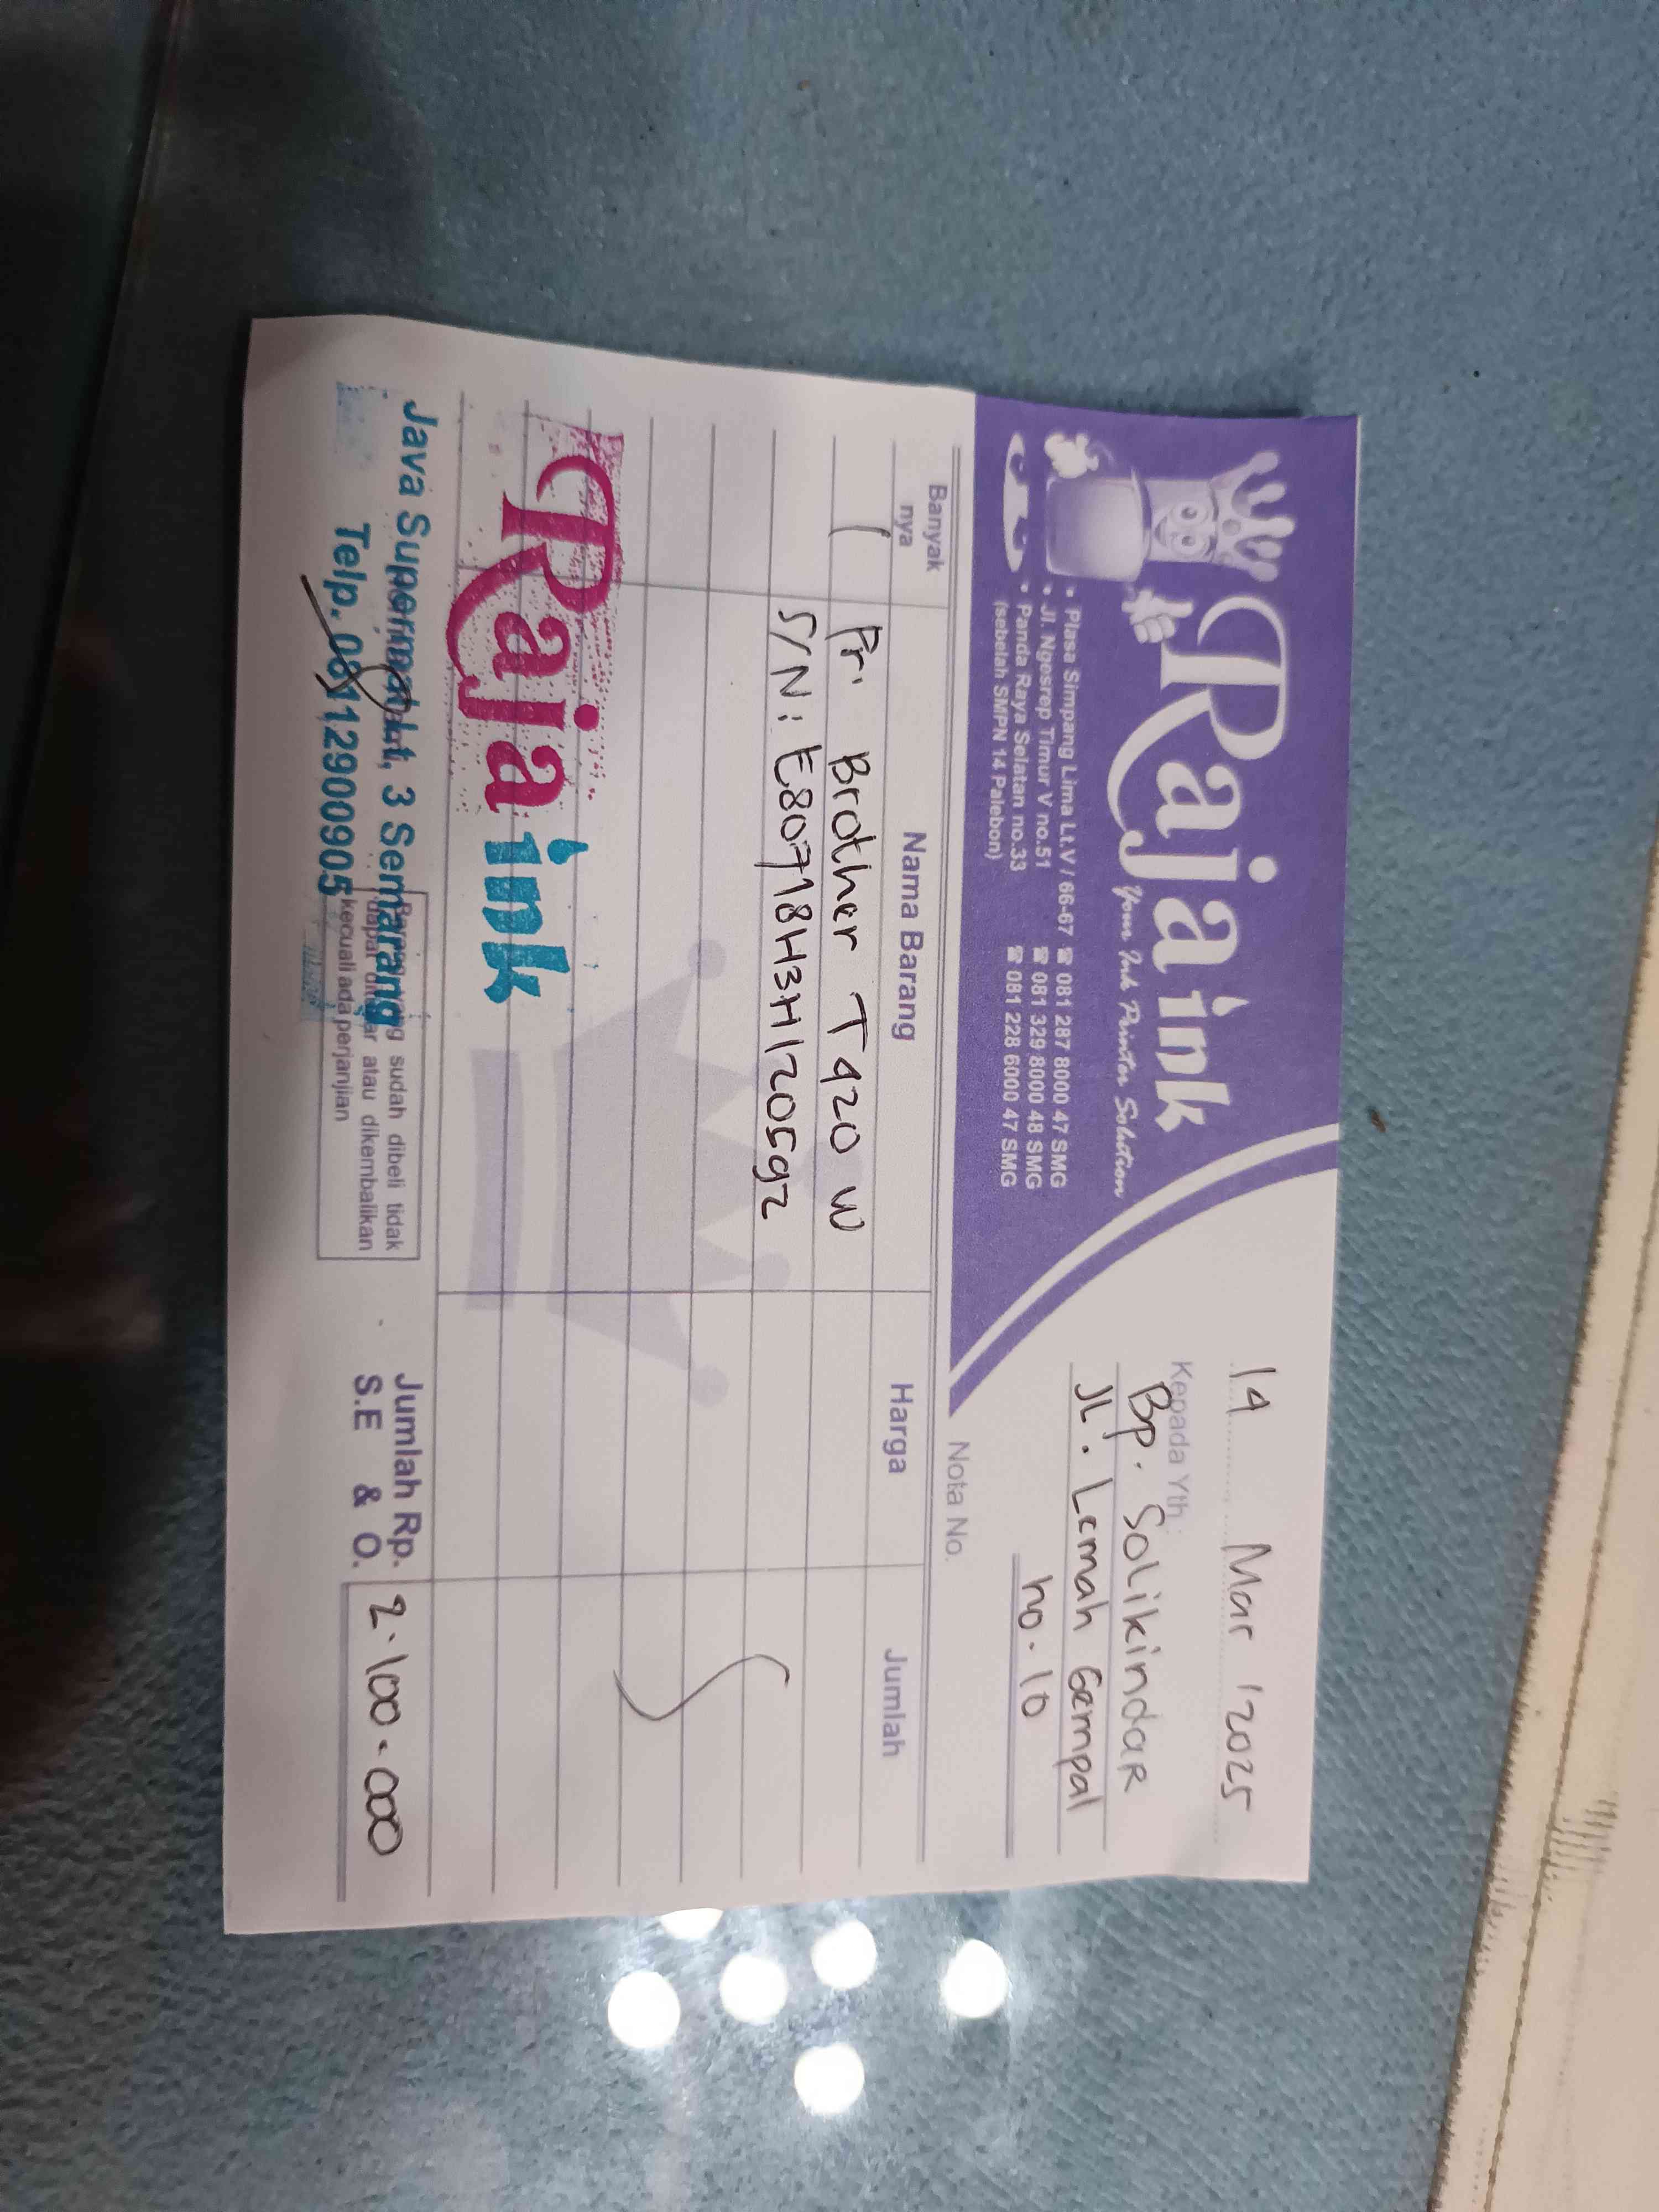 Raja ink
Your Ink Printer Solution
• Plasa Simpang Lima Lt.V / 66-67 ☎ 081 287 8000 47 SMG
• Jl. Ngesrep Timur V no.51 ☎ 081 329 8000 48 SMG
• Panda Raya Selatan no.33 ☎ 081 228 6000 47 SMG
(sebelah SMPN 14 Palebon)
14 Mar 2025
Kepada Yth :
Bp. Solikindar
JL. Lemah Gempal
no. 10
Nota No.
Banyak nya Nama Barang Harga Jumlah
1 Pr. Brother T420 W
S/N : E80718H3H120592
Raja ink
Java Supermall Lt, 3 Semarang
Telp. 08112900905
sudah dibeli tidak
atau dikembalikan
kecuali ada perjanjian
Jumlah Rp. 2.100.000
S.E & O.